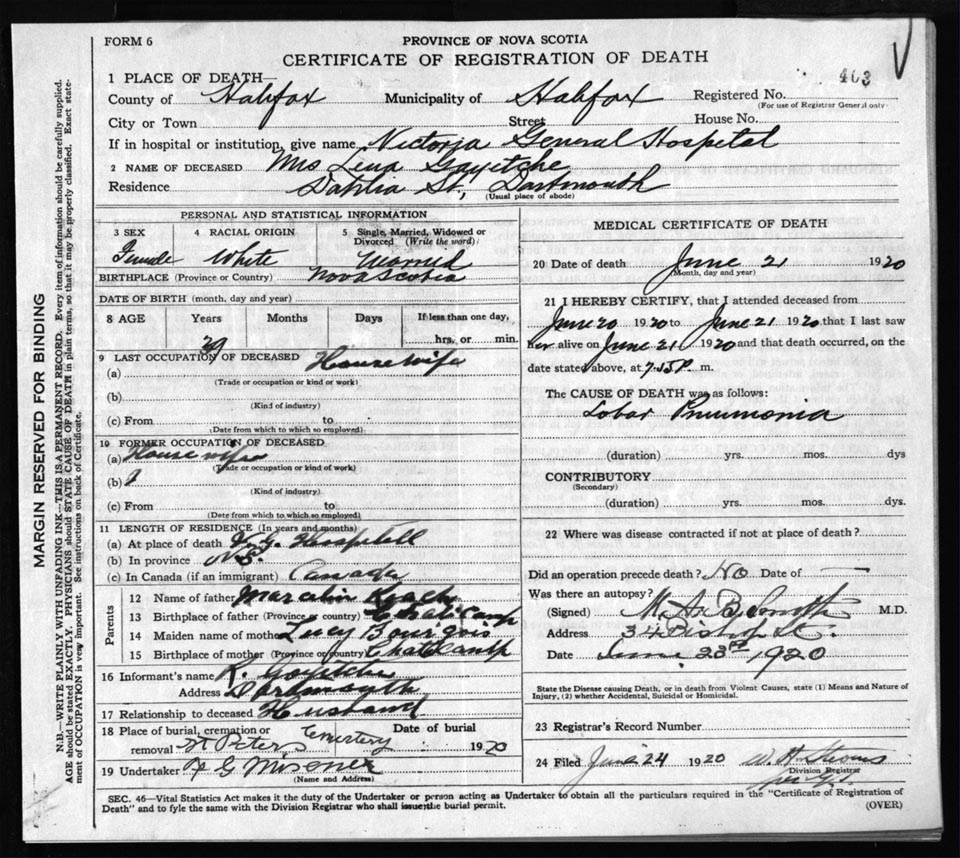 FORM 6
PROVINCE OF NOVA SCOTIA
CERTIFICATE OF REGISTRATION OF DEATH
403
1 PLACE OF DEATH—
County of Halifax Municipality of Halifax Registered No.
(For use of Registrar General only)
City or Town Street House No.
If in hospital or institution, give name Victoria General Hospital
2 NAME OF DECEASED Mrs Lena Gayetche
Residence Dahlia St., Dartmouth
(Usual place of abode)
PERSONAL AND STATISTICAL INFORMATION
3 SEX 4 RACIAL ORIGIN 5 Single, Married, Widowed or Divorced (Write the word)
Female White Married
BIRTHPLACE (Province or Country) Nova Scotia
DATE OF BIRTH (month, day and year)
8 AGE Years Months Days If less than one day, hrs. or min.
29
9 LAST OCCUPATION OF DECEASED House wife
(a)
(Trade or occupation or kind or work)
(b)
(Kind of industry)
(c) From to
(Date from which to which so employed)
10 FORMER OCCUPATION OF DECEASED
(a) House wife
(Trade or occupation or kind of work)
(b)
(Kind of industry)
(c) From to
(Date from which to which so employed)
11 LENGTH OF RESIDENCE (In years and months)
(a) At place of death V.G. Hospitell
(b) In province N.S.
(c) In Canada (if an immigrant) Canada
Parents
12 Name of father Marcelin
13 Birthplace of father (Province or country) Chati Camp
14 Maiden name of mother Lucy Bourgois
15 Birthplace of mother (Province or country) Chatticamp
16 Informant's name R.
Address Dardmouth
17 Relationship to deceased Husband
18 Place of burial, cremation or removal St Peters Cemetery Date of burial 1920
19 Undertaker G Misener
(Name and Address)
MEDICAL CERTIFICATE OF DEATH
20 Date of death June 21 1920
(Month, day and year)
21 I HEREBY CERTIFY, that I attended deceased from
June 20 1920 to June 21 1920 that I last saw
her alive on June 21 1920 and that death occurred, on the
date stated above, at P. m.
The CAUSE OF DEATH was as follows:
Lobar Pneumonia
(duration) yrs. mos. dys
CONTRIBUTORY
(Secondary)
(duration) yrs. mos. dys.
22 Where was disease contracted if not at place of death?
Did an operation precede death? No Date of —
Was there an autopsy?
(Signed) M. A. B. Smyth M.D.
Address 34 Bishop St.
Date June 23rd 1920
State the Disease causing Death, or in death from Violent Causes, state (1) Means and Nature of
Injury, (2) whether Accidental, Suicidal or Homicidal.
23 Registrar's Record Number
24 Filed June 24 1920 W. H. Stevens
Division Registrar
SEC. 46—Vital Statistics Act makes it the duty of the Undertaker or person acting as Undertaker to obtain all the particulars required in the "Certificate of Registration of
Death" and to fyle the same with the Division Registrar who shall issue the burial permit. (OVER)
MARGIN RESERVED FOR BINDING
N.B.—WRITE PLAINLY WITH UNFADING INK—THIS IS A PERMANENT RECORD. Every item of information should be carefully supplied.
AGE should be stated EXACTLY. PHYSICIANS should STATE CAUSE OF DEATH in plain terms, so that it may be properly classified. Exact state-
ment of OCCUPATION is very important. See instructions on back of Certificate.